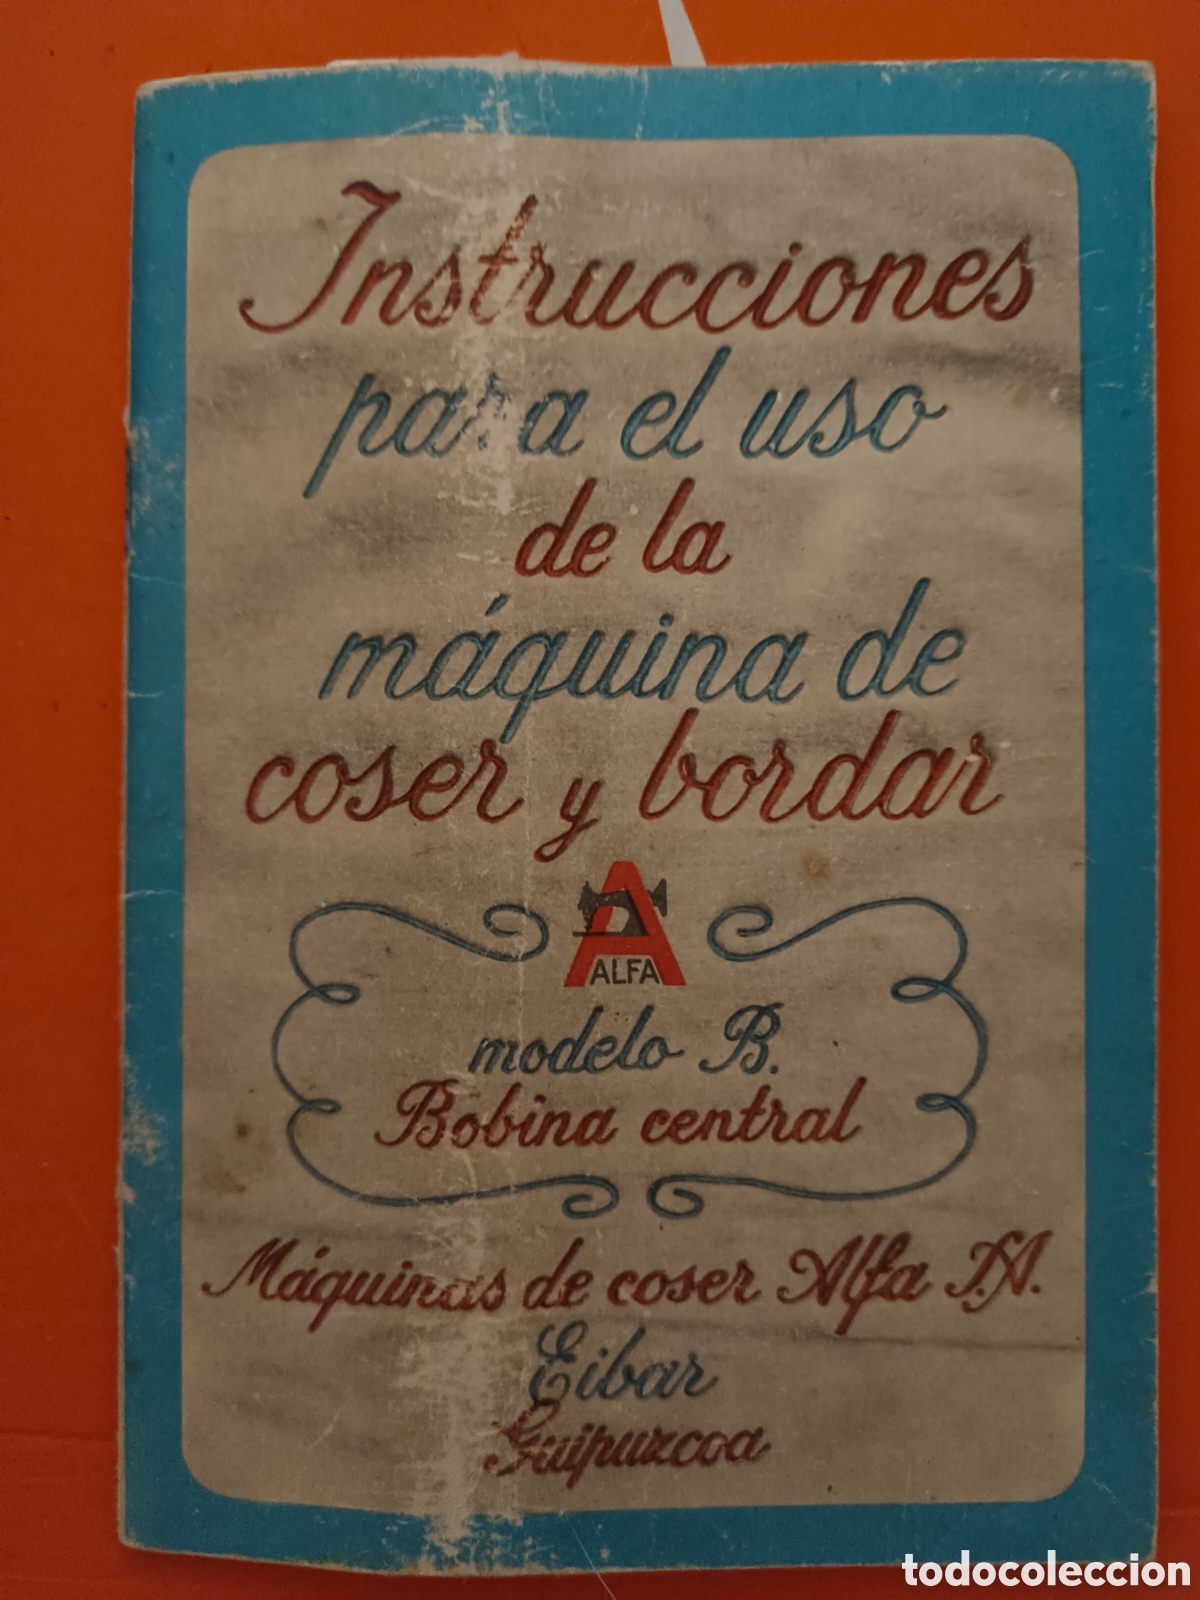 Instrucciones
para el uso
de la
máquina de
coser y bordar
ALFA
modelo B.
Bobina central
Máquinas de coser Alfa S.A.
Eibar
Guipuzcoa
todocoleccion